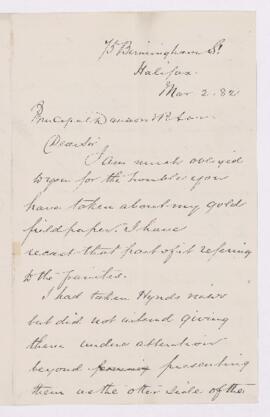 75 Birmingham St
Halifax.
Mar 2. 82
Principal Dawson
Dear Sir
I am much obliged
to you for the trouble you
have taken about my gold
field paper. I have
recast that part of it refering
to the
I had taken Hynds view
but did not intend giving
them undue attention
beyond presenting
them as the other side of the